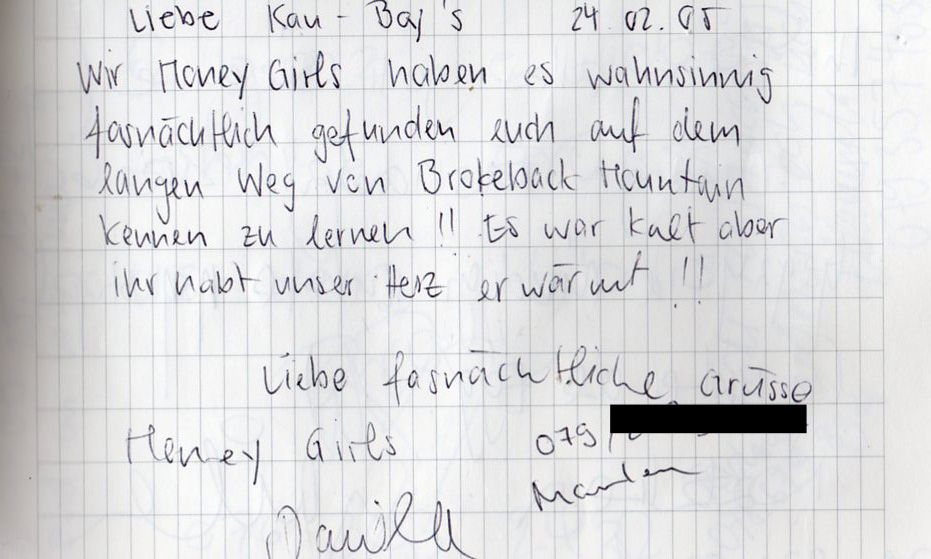 Liebe Kau - Baj's 24.02.05
Wir Honey Girls haben es wahnsinnig
fasnächtlich gefunden euch auf dem
langen Weg von Brokeback Mountain
kennen zu lernen !! Es war kalt aber
ihr habt unser Herz erwärmt !!
Liebe fasnächtliche Grüsse
Honey Girls 079/